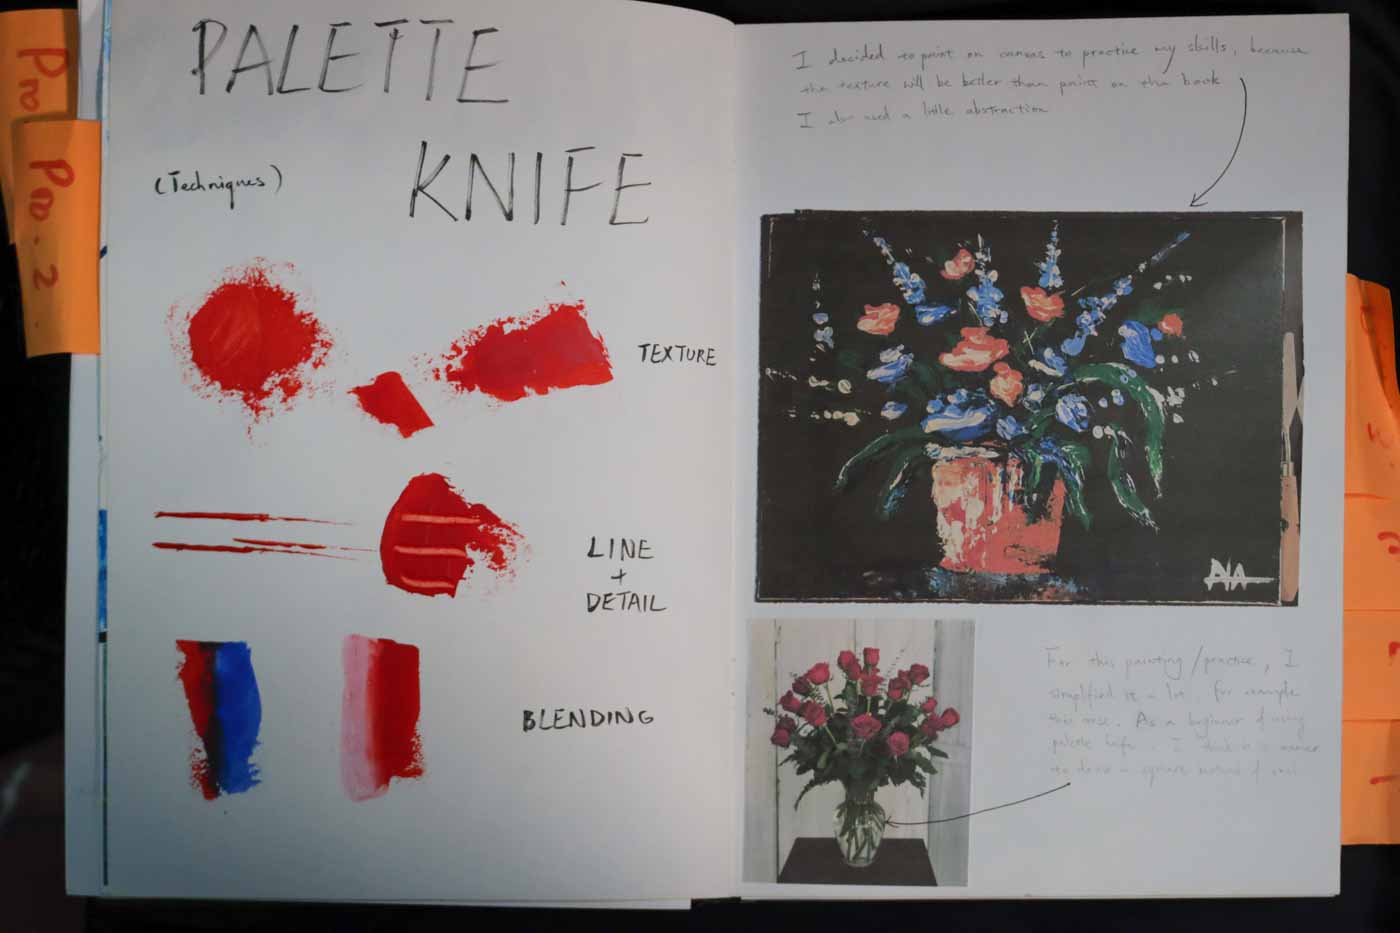 PALETTE
KNIFE
(Techniques)
TEXTURE
LINE
+
DETAIL
BLENDING
Pro.
Pro. 2
I decided to paint on canvas to practice my skills, because
the texture will be better than paint on the book
I also used a little abstraction
For this painting/practice, I
simplified it a lot. For example
this vase. As a beginner of using
palette knife. I think it is easier
to draw a square instead of